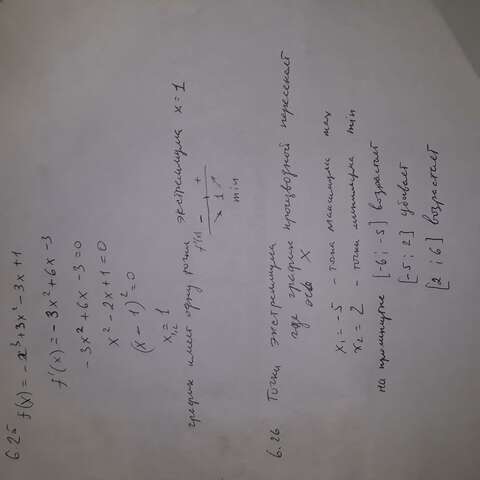 6.25 f(x) = -x³+3x²-3x+1
f'(x) = -3x²+6x-3
-3x²+6x-3=0
x²-2x+1=0
(x-1)²=0
x₁,₂=1
график имеет одну точки экстремиума x=1
f'(x) - +
1
min
6.26 Точки экстремиума
где график производной пересекает
ось X
x₁=-5 - точка максимума max
x₂=2 - точка минимума min
на промежутке [-6; -5] возрастает
[-5; 2] убывает
[2; 6] возрастает